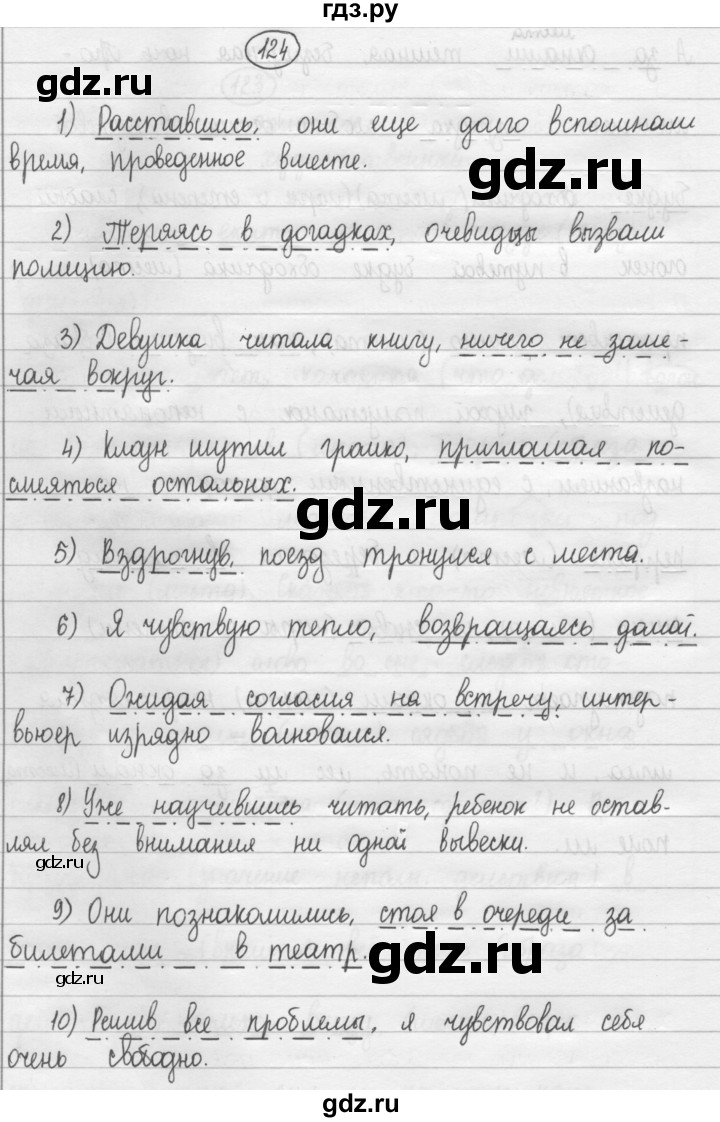 гдз.ру
124
gdz.ru
gdz.ru
1) Расставшись, они еще долго вспоминали
время, проведенное вместе.
2) Теряясь в догадках, очевидцы вызвали
полицию.
3) Девушка читала книгу, ничего не заме-
чая вокруг.
4) Клоун шутил громко, приглашая по-
смеяться остальных.
gdz.ru
5) Вздрогнув, поезд тронулся с места.
6) Я чувствую тепло, возвращаясь домой.
7) Ожидая согласия на встречу, интер-
вьюер изрядно волновался.
8) Уже научившись читать, ребенок не остав-
лял без внимания ни одной вывески.
gdz.ru
9) Они познакомились, стоя в очереди за
билетами в театр.
gdz.ru
10) Решив все проблемы, я чувствовал себя
очень свободно.
gdz.ru